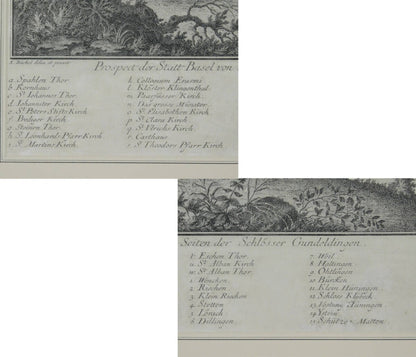 E. Büchel delin. et pinxit
Prospect der Statt Basel von
a. Spahlen Thor.
b. Kornhaus
c. St. Johannes Thor.
d. Johanniter Kirch
e. St. Peters Stifts Kirch
f. Prediger Kirch
g. Steinen Thor.
h. St. Leonhards Pfarr Kirch
i. St. Martins Kirch.
k. Collegium Erasmi
l. Klöster Klingenthal.
m. Baarfüsser Kirch.
n. Das grosse Münster.
o. St. Elisabethen Kirch
p. St. Clara Kirch
q. St. Ulrichs Kirch
r. Carthaus
s. St. Theodors Pfarr Kirch
Seiten der Schlösser Gundoldingen.
t. Eschen Thor.
u. St. Alban Kirch
w. St. Alban Thor.
1. München.
2. Riechen
3. Klein Riechen
4. Stetten
5. Lörach
6. Dillingen
7. Weil
8. Haltingen
9. Ohtlingen
10. Bürcken
11. Klein Hüningen
12. Schloss Klÿbeck
13. Vestung Hüningen
14. Ystein
15. Schützen Matten.